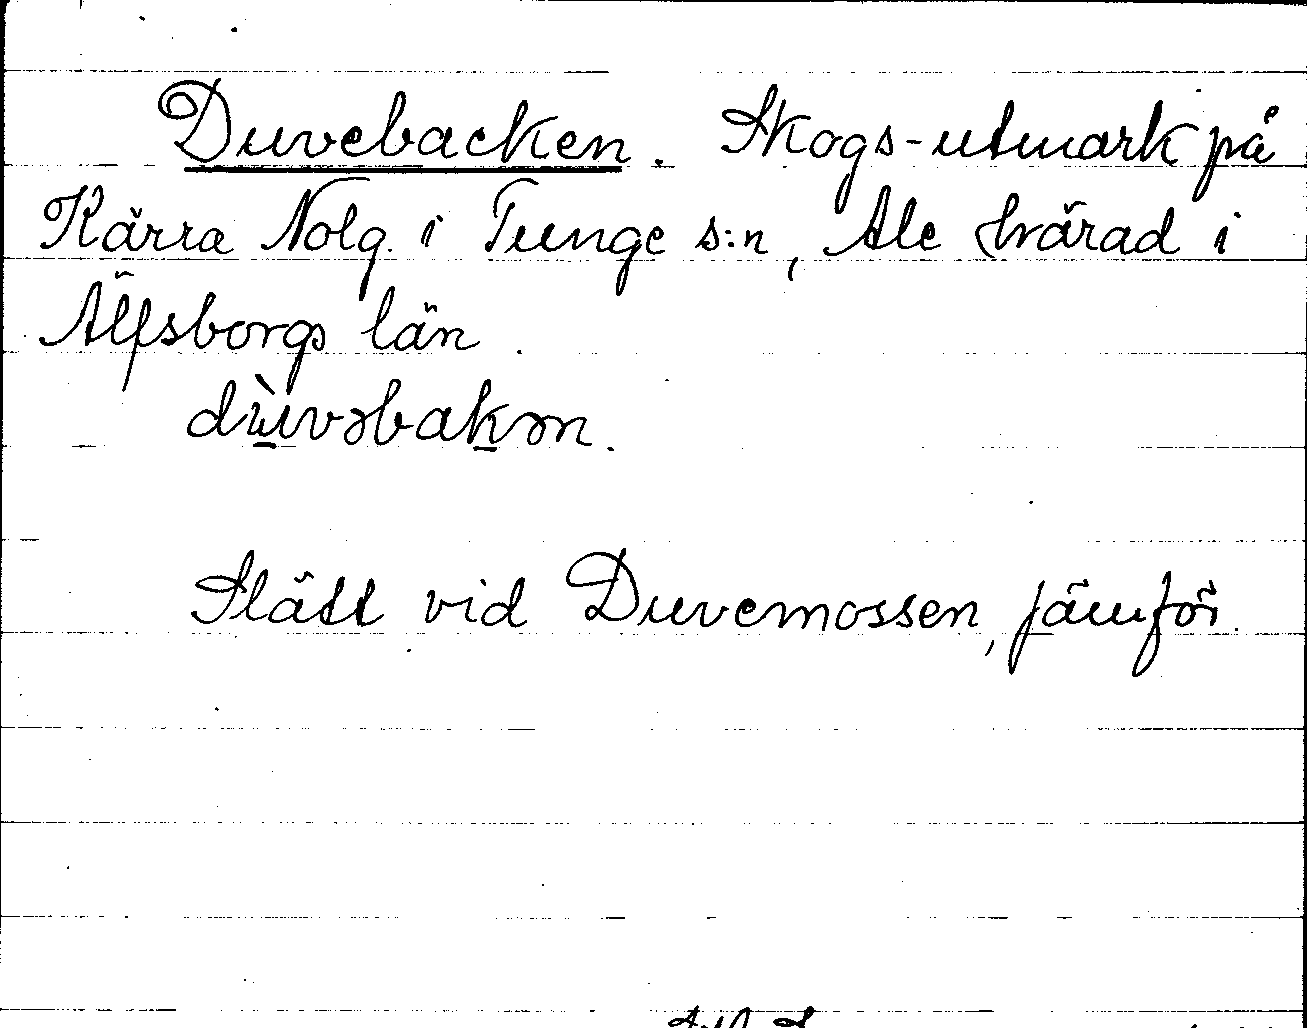 Duvebacken. Skogs-utmark på
Kärra Nolg. i Tunge s:n, Ale härad i
Älfsborgs län.
dùvəbakən.
Slätt vid Duvemossen, jämför.